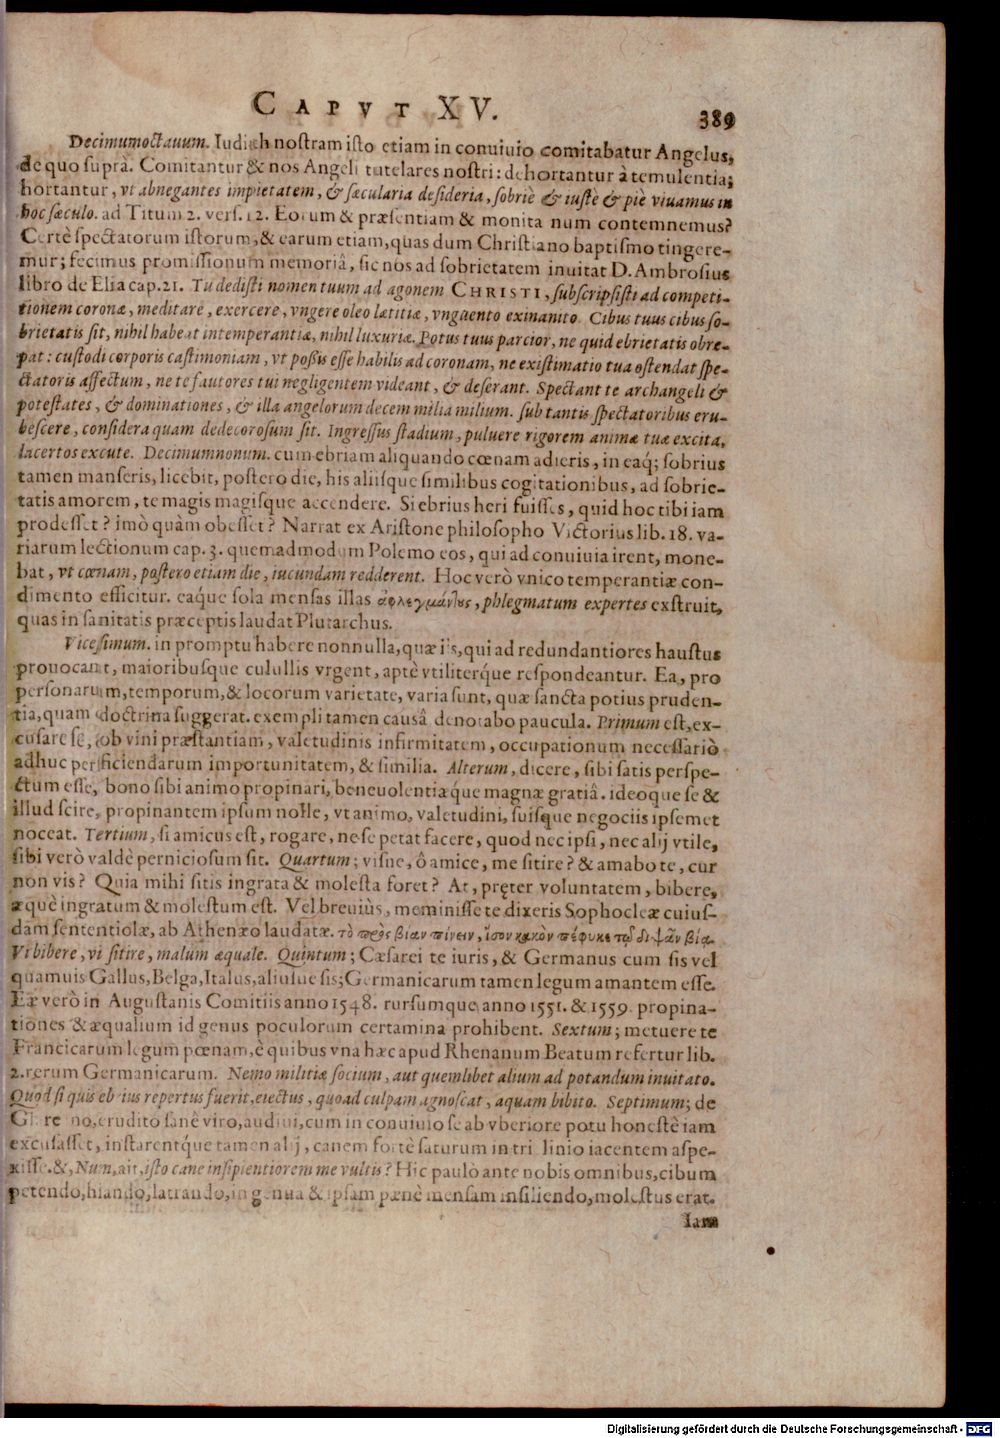 CAPVT XV. 389
Decimumoctauum. Iudith nostram isto etiam in conuiuio comitabatur Angelus,
de quo suprà. Comitantur & nos Angeli tutelares nostri: dehortantur à temulentia;
hortantur, vt abnegantes impietatem, & sæcularia desideria, sobriè & iustè & piè viuamus in
hoc sæculo. ad Titum 2. vers. 12. Eorum & præsentiam & monita num contemnemus?
Certè spectatorum istorum, & earum etiam, quas dum Christiano baptismo tingere-
mur; fecimus promissionum memoriâ, sic nos ad sobrietatem inuitat D. Ambrosius
libro de Elia cap. 21. Tu dedisti nomen tuum ad agonem CHRISTI, subscripsisti ad competi-
tionem coronæ, meditare, exercere, vngere oleo lætitiæ, vnguento exinanito. Cibus tuus cibus so-
brietatis sit, nihil habeat intemperantiæ, nihil luxuriæ. Potus tuus parcior, ne quid ebrietatis obre-
pat: custodi corporis castimoniam, vt possis esse habilis ad coronam, ne existimatio tua ostendat spe-
ctatoris affectum, ne te fautores tui negligentem videant, & deserant. Spectant te archangeli &
potestates, & dominationes, & illa angelorum decem milia milium. sub tantis spectatoribus eru-
bescere, considera quam dedecorosum sit. Ingressus stadium, puluere rigorem animæ tuæ excita,
lacertos excute. Decimumnonum. cum ebriam aliquando cœnam adieris, in eaq; sobrius
tamen manseris, licebit, postero die, his aliisque similibus cogitationibus, ad sobrie-
tatis amorem, te magis magisque accendere. Si ebrius heri fuisses, quid hoc tibi iam
prodesset? imò quàm obesset? Narrat ex Aristone philosopho Victorius lib. 18. va-
riarum lectionum cap. 3. quemadmodum Polemo eos, qui ad conuiuia irent, mone-
bat, vt cœnam, postero etiam die, iucundam redderent. Hoc verò vnico temperantiæ con-
dimento efficitur. eaque sola mensas illas ἀφλεγμάντους, phlegmatum expertes exstruit,
quas in sanitatis præceptis laudat Plutarchus.
Vicesimum. in promptu habere nonnulla, quæ iis, qui ad redundantiores haustus
prouocant, maioribusque culullis vrgent, aptè vtiliterque respondeantur. Ea, pro
personarum, temporum, & locorum varietate, varia sunt, quæ sancta potius pruden-
tia, quam doctrina suggerat. exempli tamen causâ denotabo paucula. Primum est, ex-
cusare se, ob vini præstantiam, valetudinis infirmitatem, occupationum necessariò
adhuc perficiendarum importunitatem, & similia. Alterum, dicere, sibi satis perspe-
ctum esse, bono sibi animo propinari, beneuolentiæque magnæ gratiâ. ideoque se &
illud scire, propinantem ipsum nolle, vt animo, valetudini, suisque negociis ipsemet
noceat. Tertium, si amicus est, rogare, ne se petat facere, quod nec ipsi, nec alij vtile,
sibi verò valdè perniciosum sit. Quartum; visne, ô amice, me sitire? & amabo te, cur
non vis? Quia mihi sitis ingrata & molesta foret? At, pręter voluntatem, bibere,
æquè ingratum & molestum est. Vel breuiùs, meminisse te dixeris Sophocleæ cuius-
dam sententiolæ, ab Athenæo laudatæ. τὸ πρὸς βίαν πίνειν, ἴσον κακὸν πέφυκε τῷ διψᾶν βίᾳ.
Vi bibere, vi sitire, malum æquale. Quintum; Cæsarei te iuris, & Germanus cum sis vel
quamuis Gallus, Belga, Italus, aliusue sis; Germanicarum tamen legum amantem esse.
Eæ verò in Augustanis Comitiis anno 1548. rursumque anno 1551. & 1559. propina-
tiones & æqualium id genus poculorum certamina prohibent. Sextum; metuere te
Francicarum legum pœnam, è quibus vna hæc apud Rhenanum Beatum refertur lib.
2. rerum Germanicarum. Nemo militiæ socium, aut quemlibet alium ad potandum inuitato.
Quod si quis ebrius repertus fuerit, eiectus, quoad culpam agnoscat, aquam bibito. Septimum; de
erudito sanè viro, audiui, cum in conuiuio se ab vberiore potu honestè iam
excusasset, instarentque tamen alij, canem fortè saturum in triclinio iacentem aspe-
xisse. &, Num, ait, isto cane insipientiorem me vultis? Hic paulò ante nobis omnibus, cibum
petendo, hiando, latrando, in genua & ipsam pænè mensam insiliendo, molestus erat.
Iam
Digitalisierung gefördert durch die Deutsche Forschungsgemeinschaft - DFG